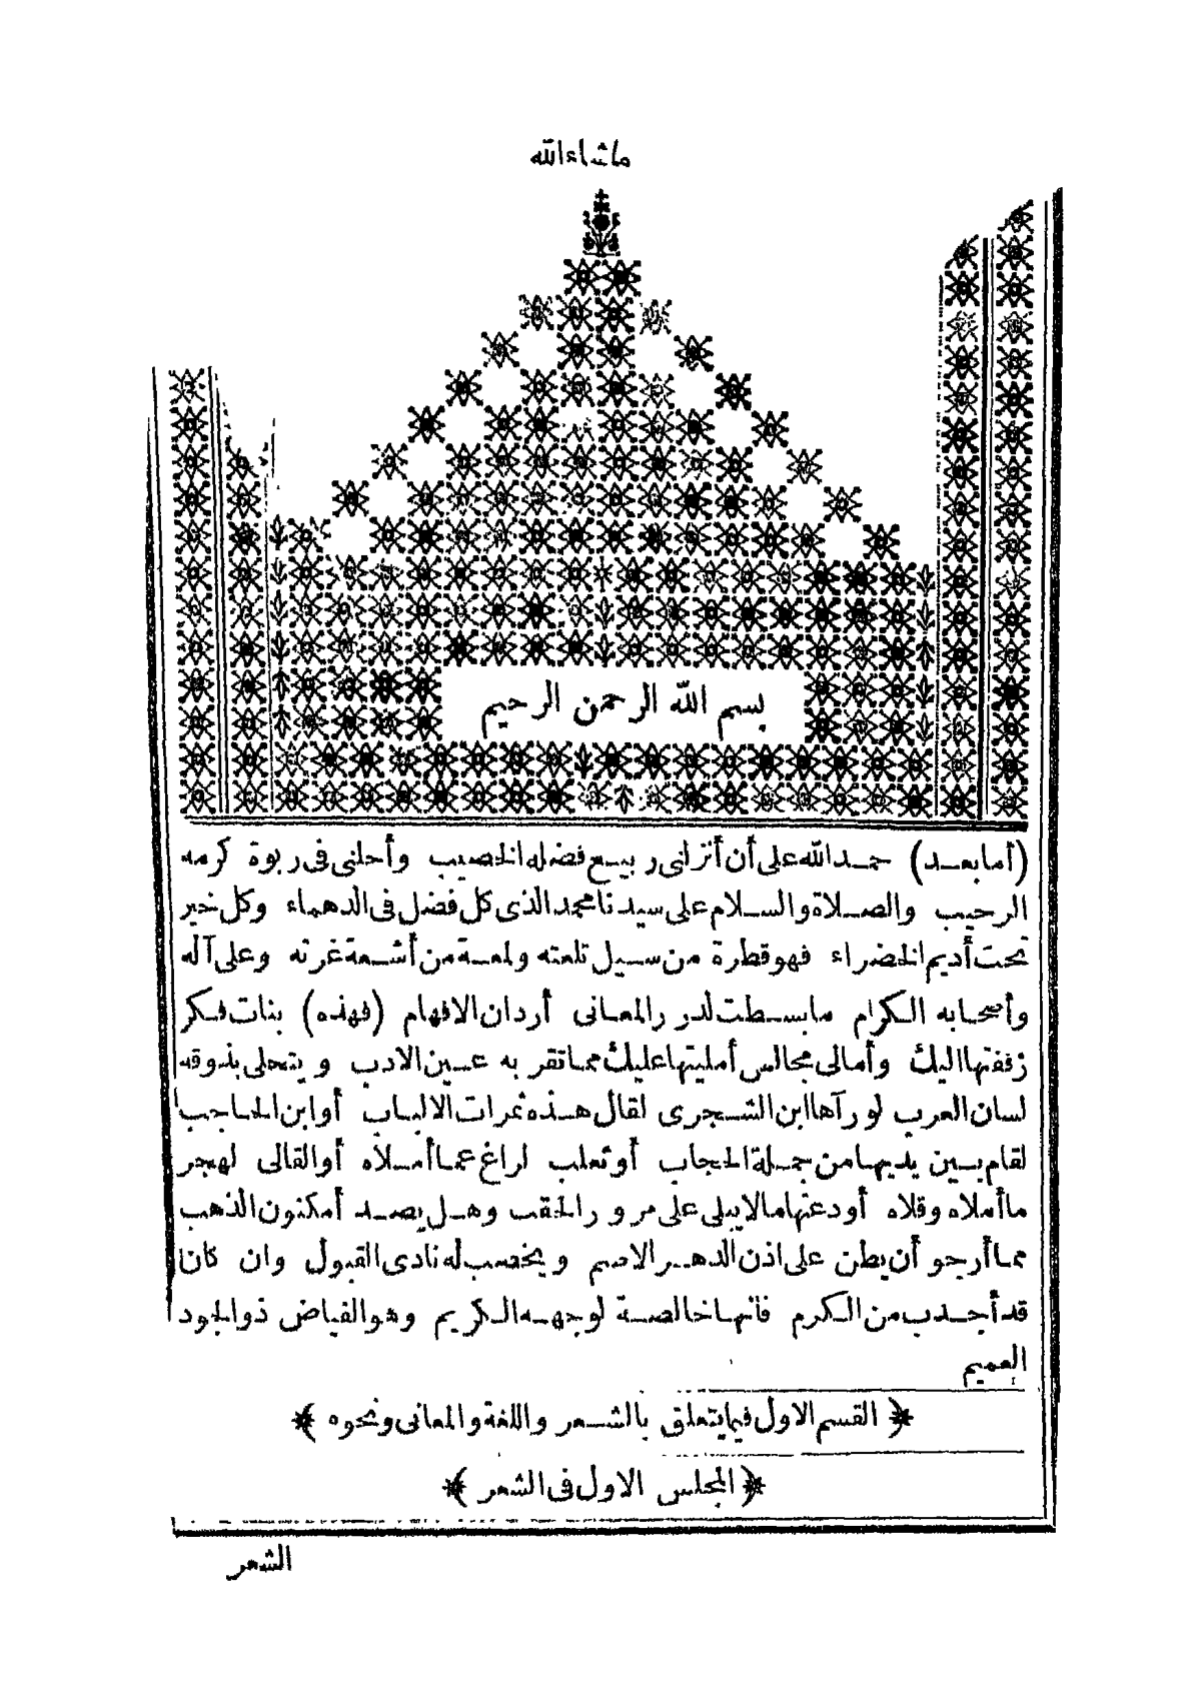 ماشاءالله
بسم الله الرحمن الرحيم
(أمابعد) حمدالله على أن أنزلنى ربيع فضله الخصيب وأحلنى فى ربوة كرمه
الرحيب والصلاة والسلام على سيدنا محمد الذى كل فضل فى الدهماء وكل خير
تحت أديم الخضراء فهو قطرة من سيل تلعته ولمعة من أشعة غرته وعلى آله
وأصحابه الكرام ما بسطت لدر المعانى أردان الافهام (فهذه) بنات فكر
زففتها اليك وأمالى مجالس أمليتها عليك مما تقر به عين الادب ويتحلى بذوقه
لسان العرب لو رآها ابن الشجرى لقال هذه ثمرات الالباب أو ابن الحاجب
لقام بين يديها من جملة الحجاب أو ثعلب لراغ عما أملاه أو القالى لهجر
ما أملاه وقلاه أودعتها مالا يبلى على مرور الحقب وهل يصدأ مكنون الذهب
مما أرجو أن يطن على اذن الدهر الاصم ويخصب له نادى القبول وان كان
قد أجدب من الكرم فانها خالصة لوجهه الكريم وهو الفياض ذو الجود
العميم
﴿القسم الاول فيما يتعلق بالشعر واللغة والمعانى ونحوه﴾
﴿المجلس الاول فى الشعر﴾
الشعر